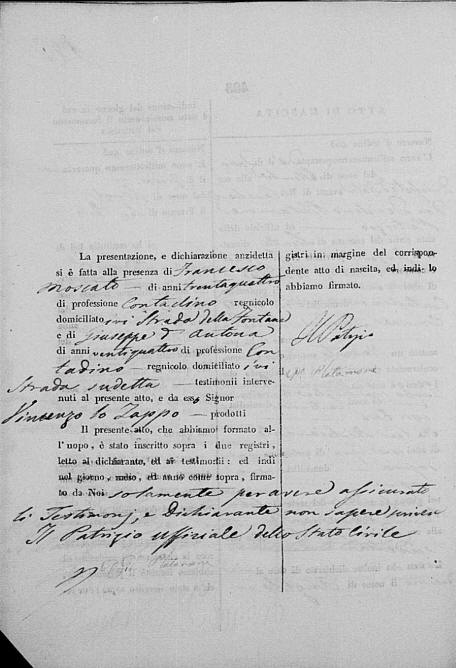 La presentazione, e dichiarazione anzidetta
si è fatta alla presenza di Francesco
Moscato — di anni trentaquattro
di professione Contadino regnicolo
domiciliato ivi Strada della Fontana
e di Giuseppe D'Antona
di anni ventiquattro di professione Con
tadino — regnicolo domiciliato ivi
Strada sudetta — testimonii interve-
nuti al presente atto, e da esso Signor
Vincenzo lo Zappo — prodotti
Il presente atto, che abbiamo formato al-
l'uopo, è stato inscritto sopra i due registri,
letto al dichiarante, ed ai testimonii: ed indi
nel giorno, mese, ed anno come sopra, firma-
to da Noi solamente per avere assicurato
li Testimonj, e Dichiarante non sapere scrivere
Il Patrizio uffiziale dello Stato Civile
gistri in margine del corrispon-
dente atto di nascita, ed indi lo
abbiamo firmato.
Il Patrizio